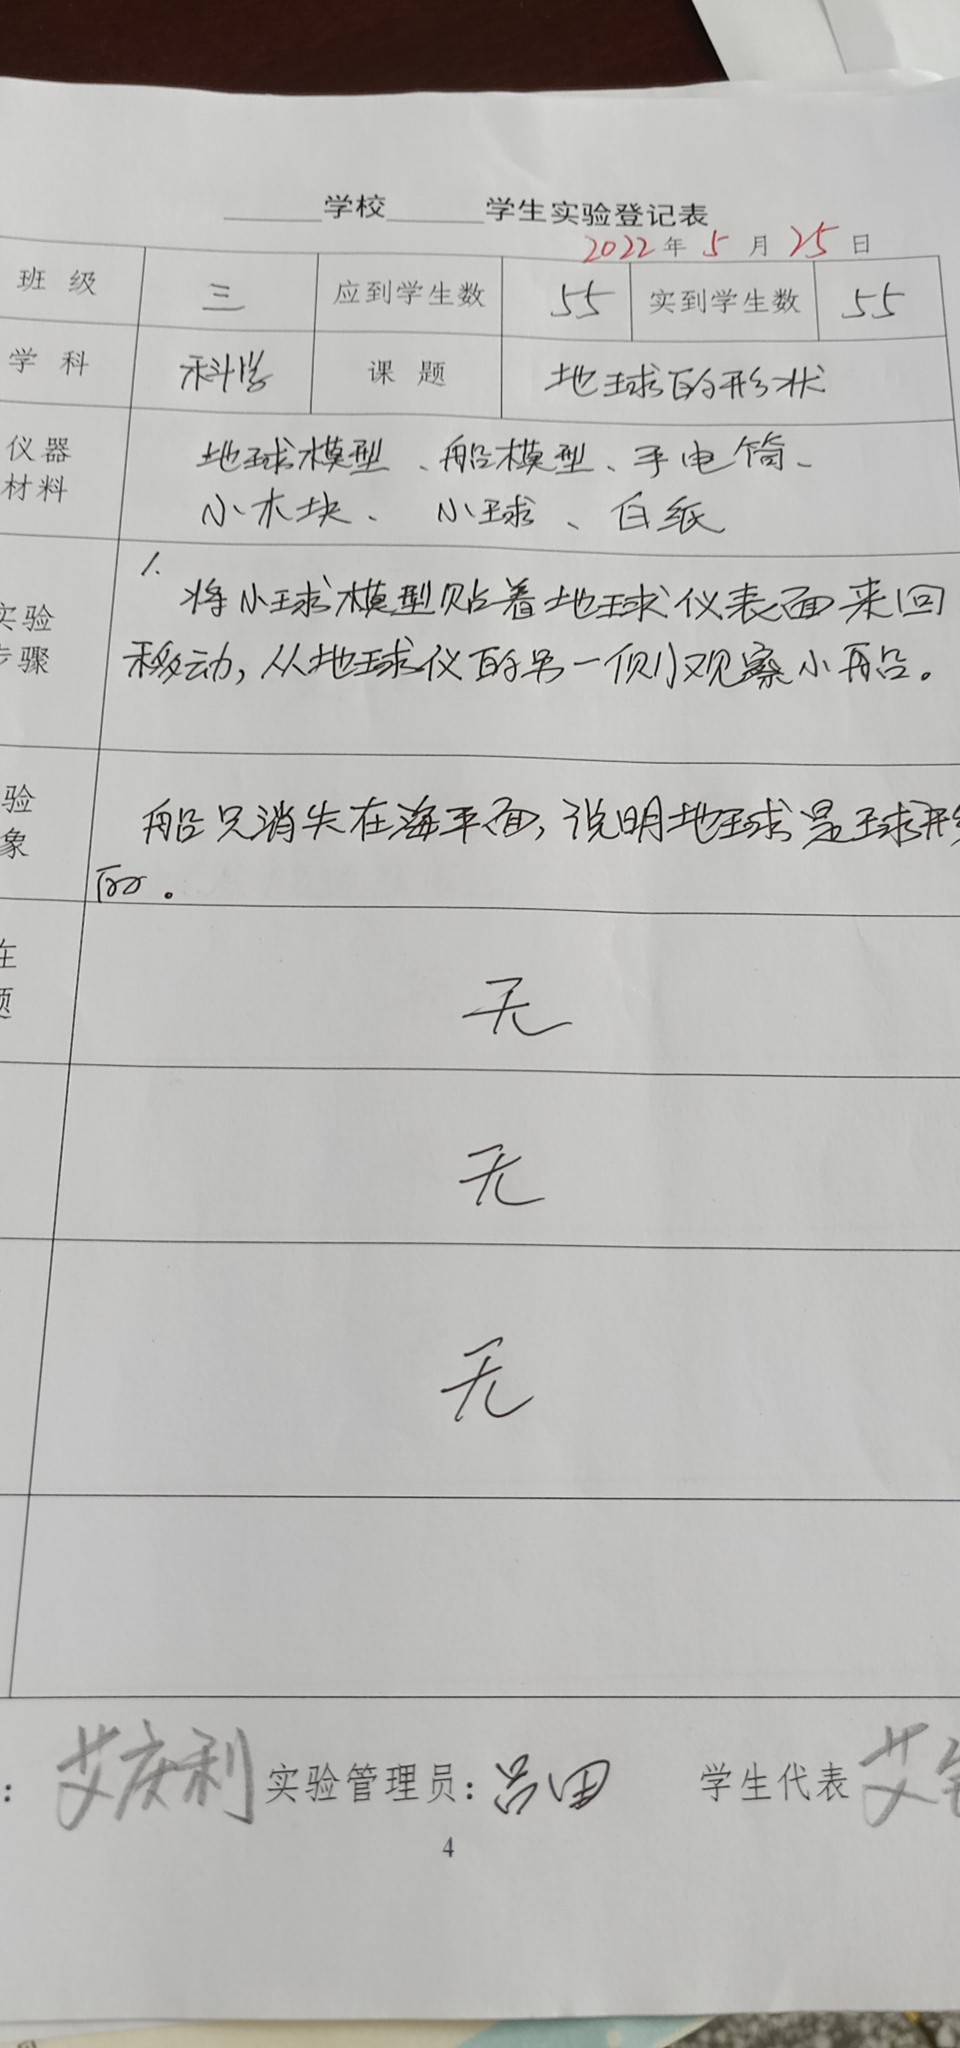 ______学校______学生实验登记表
2022年5月25日
班 级 三 应到学生数 55 实到学生数 55
学 科 科学 课 题 地球的形状
仪器 地球模型、船模型、手电筒、
材料 小木块、 小球、白纸
1.
实验 将小球模型贴着地球仪表面来回
步骤 移动,从地球仪的另一侧观察小船。
验 船只消失在海平面,说明地球是球形
象 的。
在
题 无
无
无
: 艾庆利 实验管理员:吕田 学生代表 艾
4